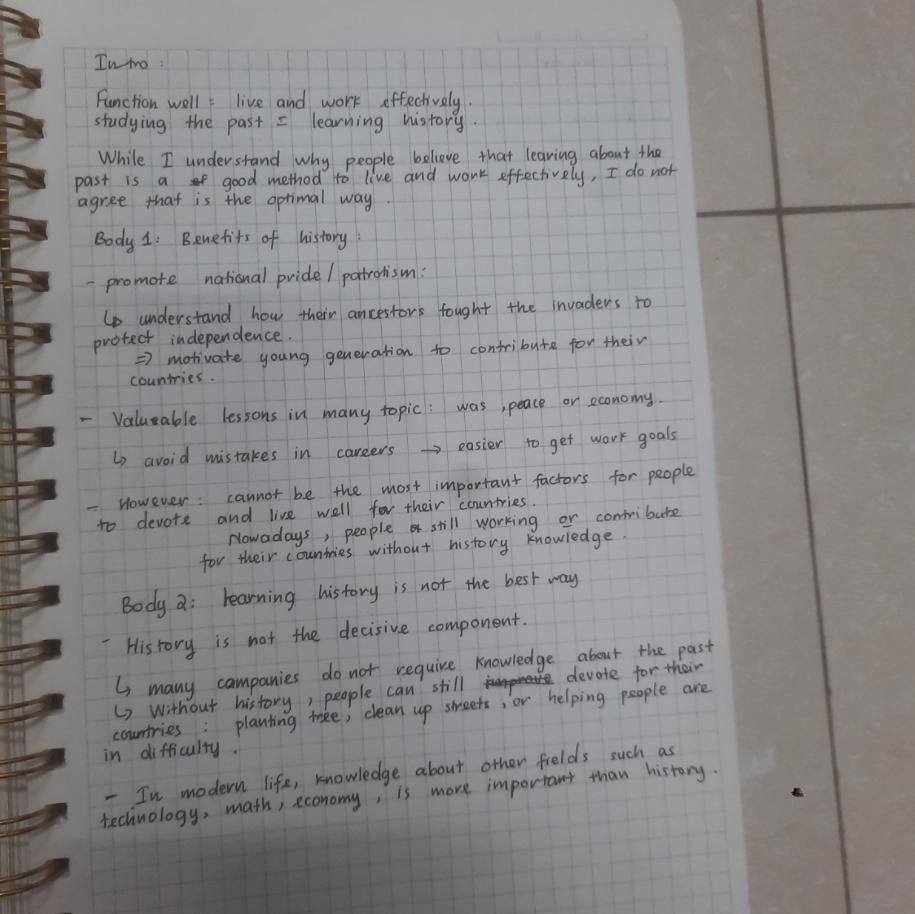 Intro :
Function well = live and work effectively.
studying the past = learning history.
While I understand why people believe that learing about the
past is a good method to live and work effectively, I do not
agree that is the optimal way.
Body 1: Benefits of history:
- promote national pride / patrotism:
↳ understand how their ancestors fought the invaders to
protect independence.
=> motivate young generation to contribute for their
countries.
- Valuable lessons in many topic: was, peace or economy.
↳ avoid mistakes in careers → easier to get work goals
- However: cannot be the most important factors for people
to devote and live well for their countries.
Nowadays, people still working or contribute
for their countries without history knowledge.
Body 2: learning history is not the best way
- History is not the decisive component.
↳ many companies do not require knowledge about the past
↳ Without history, people can still devote for their
countries: planting tree, clean up streets, or helping people are
in difficulty.
- In modern life, knowledge about other fields such as
technology, math, economy, is more important than history.